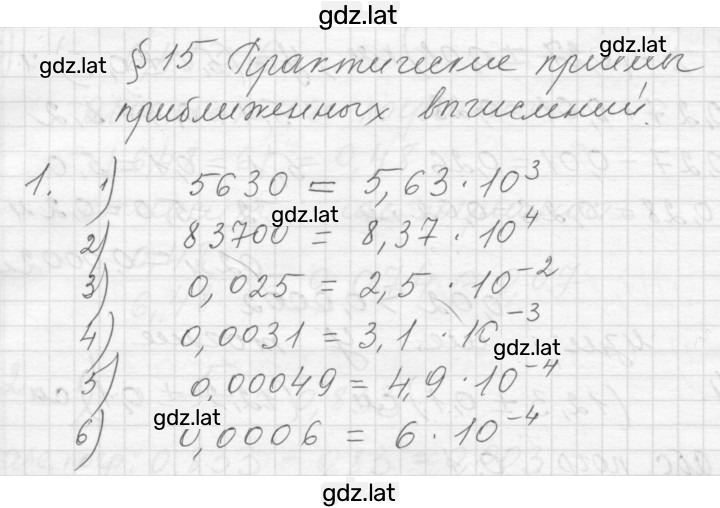 gdz.lat
gdz.lat
gdz.lat
§ 15 Практические приёмы
приближенных вычислений.
1. 1) 5630 = 5,63 · 10³
gdz.lat
2) 83700 = 8,37 · 10⁴
3) 0,025 = 2,5 · 10⁻²
4) 0,0031 = 3,1 · 10⁻³
gdz.lat
5) 0,00049 = 4,9 · 10⁻⁴
gdz.lat
6) 0,0006 = 6 · 10⁻⁴
gdz.lat